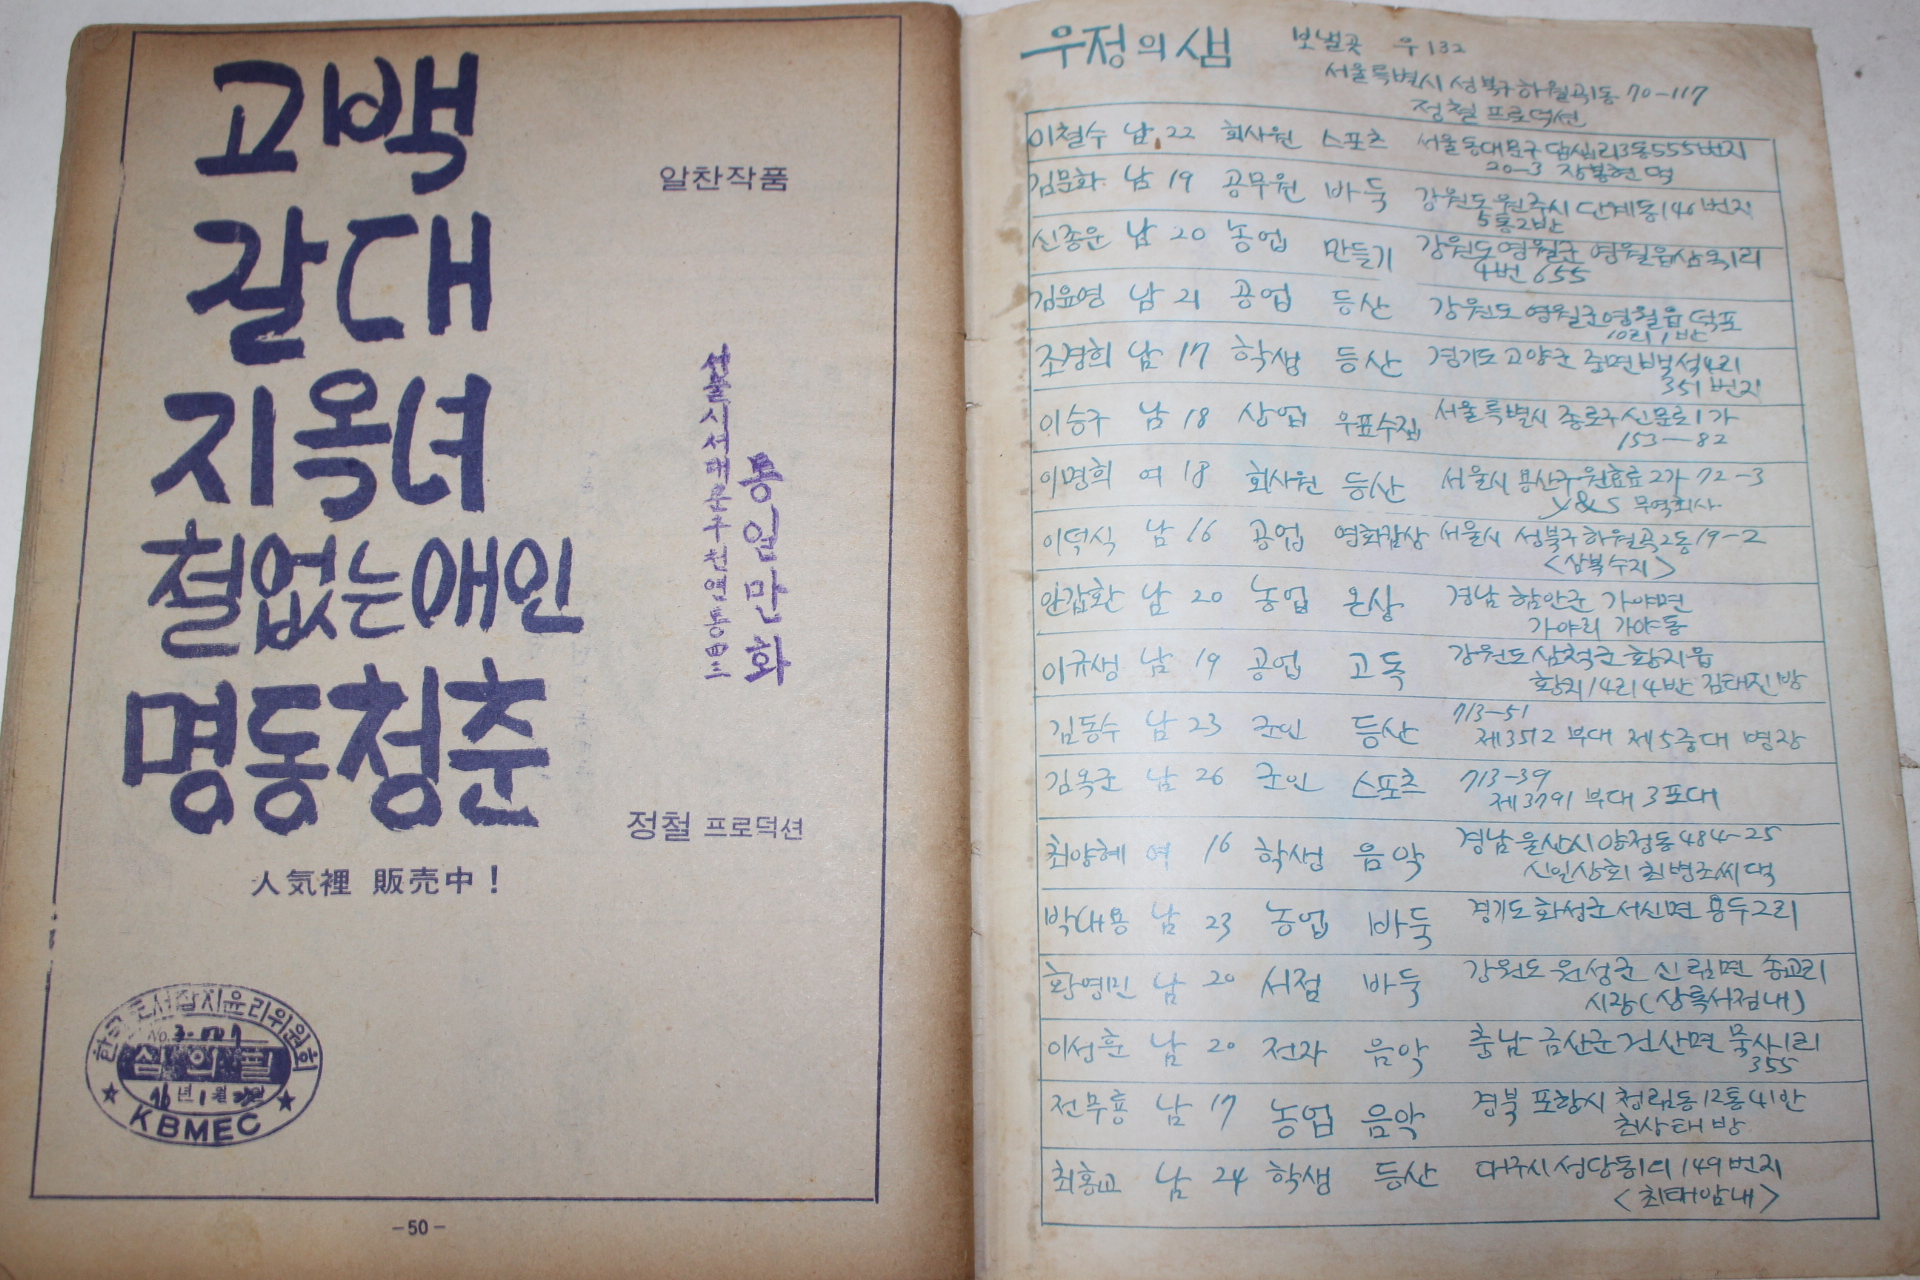 고백
갈대
지옥녀
철없는애인
명동청춘
알찬작품
서울시서대문구천연동四三
동일만화
정철 프로덕션
人気裡 販売中!
한국도서잡지윤리위원회
No.
심의필
76년 1월
★ KBMEC ★
-50-
우정의 샘 보낼곳 우132
서울특별시 성북구하월곡1동 70-117
정철 프로덕션
이철수 남 22 회사원 스포츠 서울동대문구 답십리3동555번지
20-3 장봉현 댁
김문화 남 19 공무원 바둑 강원도원주시 단계동146번지
5통2반
신종운 남 20 농업 만들기 강원도영월군 영월읍삼옥1리
4반 655
김윤영 남 21 공업 등산 강원도 영월군영월읍 덕포
10리 1반
조경희 남 17 학생 등산 경기도 고양군 중면백석4리
351번지
이승구 남 18 상업 우표수집 서울특별시 종로구신문로1가
153-82
이명희 여 18 회사원 등산 서울시 용산구원효로2가 72-3
Y&S 무역회사
이덕식 남 16 공업 영화감상 서울시 성북구하월곡2동19-2
<삼북수지>
안갑환 남 20 농업 온상 경남 함안군 가야면
가야리 가야동
이규생 남 19 공업 고독 강원도삼척군 황지읍
황지14리4반 김태진방
김동수 남 23 군인 등산 713-51
제3512 부대 제5중대 명장
김옥군 남 26 군인 스포츠 713-39
제3791 부대 3포대
최양혜 여 16 학생 음악 경남울산시양정동484-25
신일상회 최병조씨댁
박대용 남 23 농업 바둑 경기도화성군서신면 용두2리
황영민 남 20 서점 바둑 강원도 원성군 신림면 송교리
시장(상록서점내)
이성훈 남 20 전자 음악 충남 금산군건산면 묵사1리
355
전무룡 남 17 농업 음악 경북 포항시 청림동12통41반
최상태방
최홍교 남 24 학생 등산 대구시성당동1의149번지
<최태암내>